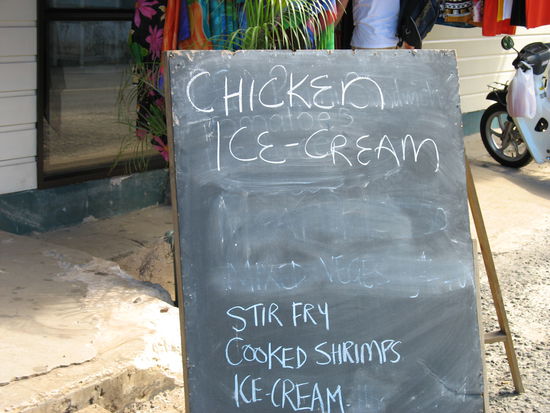 CHICKEN
ICE-CREAM
MIXED VEGES
STIR FRY
COOKED SHRIMPS
ICE-CREAM